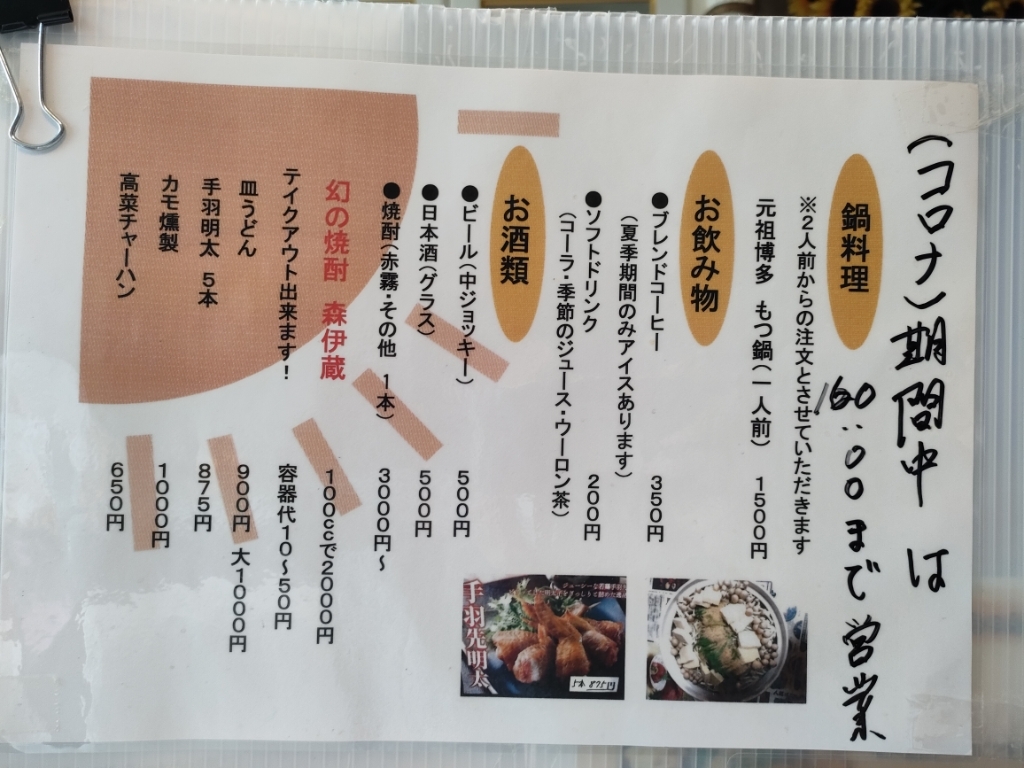 （コロナ）期間中は
16:00まで営業
鍋料理
※２人前からの注文とさせていただきます
元祖博多　もつ鍋（一人前）　１５００円
お飲み物
●ブレンドコーヒー　３５０円
（夏季期間のみアイスあります）
●ソフトドリンク　２００円
（コーラ・季節のジュース・ウーロン茶）
お酒類
●ビール（中ジョッキー）　５００円
●日本酒（グラス）　５００円
●焼酎（赤霧・その他　１本）　３０００円～
幻の焼酎　森伊蔵　１００ｃｃで２０００円
テイクアウト出来ます！　容器代１０～５０円
皿うどん　９００円　大１０００円
手羽明太　５本　８７５円
カモ燻製　１０００円
高菜チャーハン　６５０円
手羽先明太
5本 875円